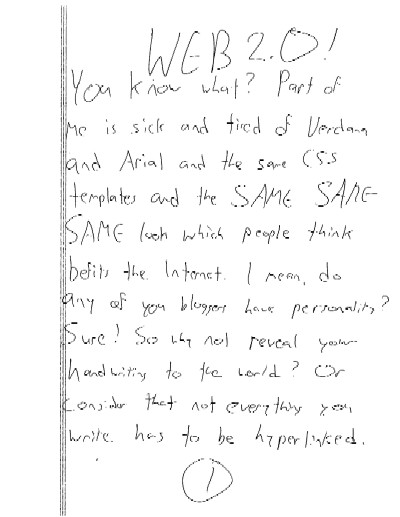 WEB 2.0!
You know what? Part of
me is sick and tired of Verdana
and Arial and the same CSS
templates and the SAME SAME
SAME look which people think
befits the Internet. I mean, do
any of you bloggers have personality?
Sure! So why not reveal your
handwriting to the world? Or
consider that not everything you
write has to be hyperlinked.
1